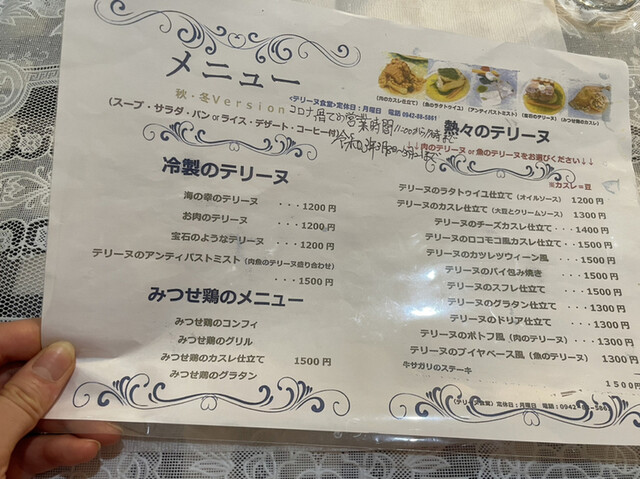 メニュー
秋・冬Version
(スープ・サラダ・パン or ライス・デザート・コーヒー付)
(肉のカスレ仕立て) (魚のラタトゥイユ) (アンティパストミスト) (宝石のテリーヌ) (みつせ鶏のカスレ)
<テリーヌ食堂>定休日:月曜日 電話 0942-
コロナ用での営業時間 11:00から
冷製のテリーヌ
海の幸のテリーヌ ・・・1200円
お肉のテリーヌ ・・・1200円
宝石のようなテリーヌ ・・・1200円
テリーヌのアンティパストミスト(肉魚のテリーヌ盛り合わせ)
・・・・1500円
みつせ鶏のメニュー
みつせ鶏のコンフィ
みつせ鶏のグリル
みつせ鶏のカスレ仕立て 1500円
みつせ鶏のグラタン
熱々のテリーヌ
↓↓肉のテリーヌ or 魚のテリーヌをお選びください↓↓
※カスレ=豆
テリーヌのラタトゥイユ仕立て (オイルソース) 1200円
テリーヌのカスレ仕立て (大豆とクリームソース) 1300円
テリーヌのチーズカスレ仕立て・・・1400円
テリーヌのロコモコ風カスレ仕立て・・1500円
テリーヌのカツレツウィーン風 ・・・1500円
テリーヌのパイ包み焼き ・・・1500円
テリーヌのスフレ仕立て ・・・1500円
テリーヌのグラタン仕立て ・・・1300円
テリーヌのドリア仕立て ・・・・1300円
テリーヌのポトフ風 (肉のテリーヌ)・・・1300円
テリーヌのブイヤベース風 (魚のテリーヌ) 1300円
牛サガリのステーキ
1500円
(テリーヌ食堂) 定休日:月曜日 電話:0942-